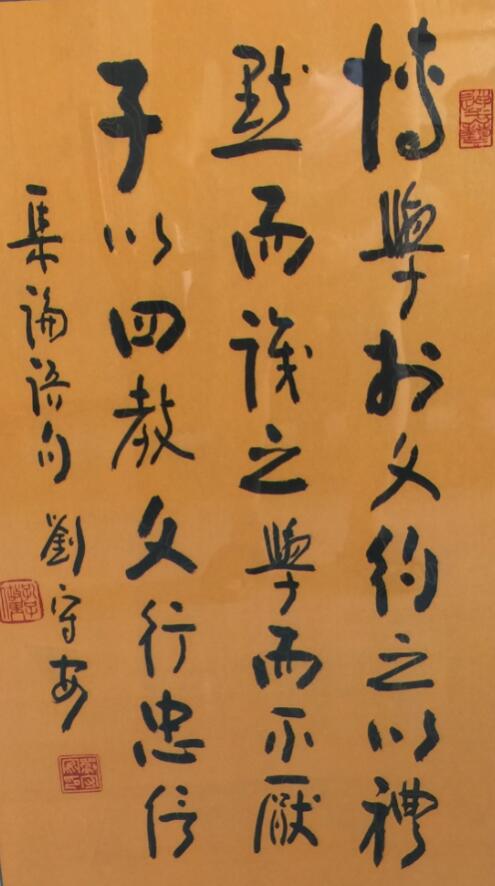 博學於文約之以禮
默而識之學而不厭
子以四教文行忠信
集論語句 劉守安